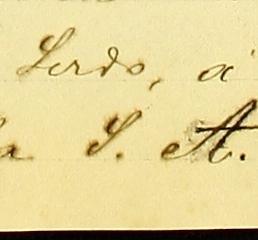 Lerdo, á
la S. A.